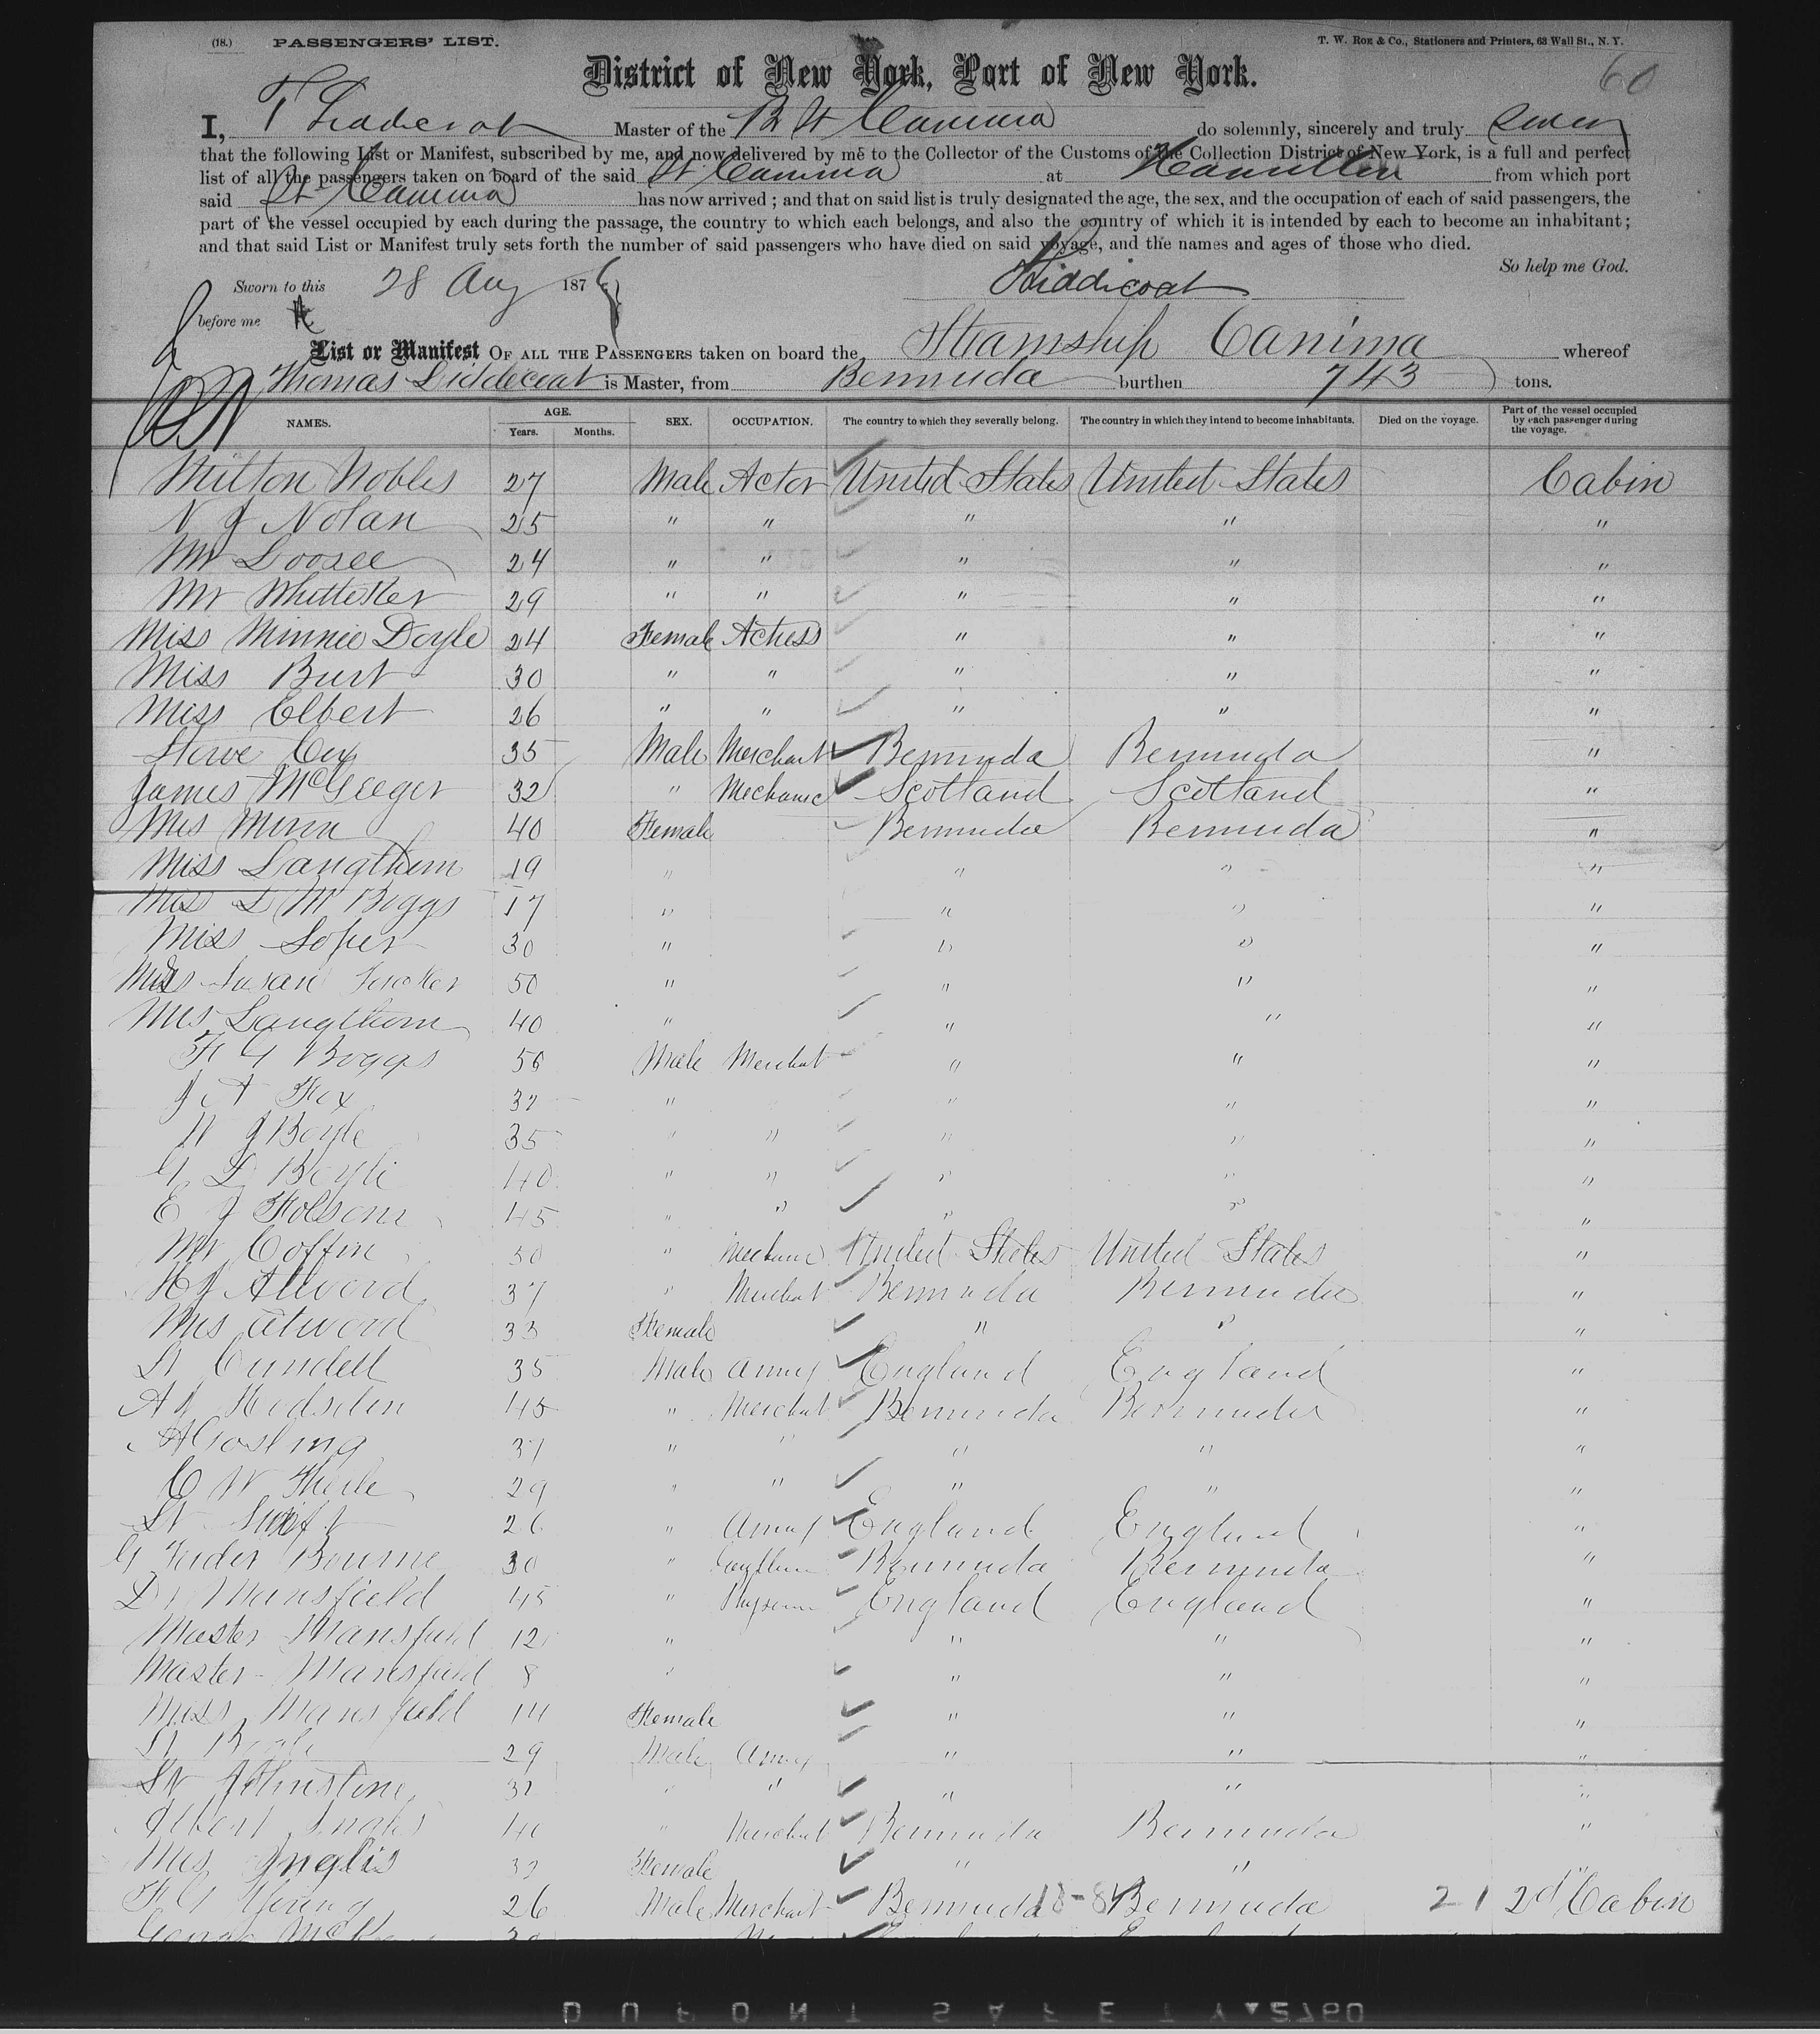 (18.) PASSENGERS' LIST. T. W. Roe & Co., Stationers and Printers, 63 Wall St., N. Y.
District of New York, Port of New York. 60
I, T Liddicoat Master of the Br St Canima do solemnly, sincerely and truly swear
that the following List or Manifest, subscribed by me, and now delivered by me to the Collector of the Customs of the Collection District of New York, is a full and perfect
list of all the passengers taken on board of the said St Canima at Hamilton from which port
said St Canima has now arrived; and that on said list is truly designated the age, the sex, and the occupation of each of said passengers, the
part of the vessel occupied by each during the passage, the country to which each belongs, and also the country of which it is intended by each to become an inhabitant;
and that said List or Manifest truly sets forth the number of said passengers who have died on said voyage, and the names and ages of those who died.
So help me God.
Sworn to this 28 Aug 1876 Liddicoat
before me
List or Manifest OF ALL THE PASSENGERS taken on board the Steamship Canima whereof
Thomas Liddicoat is Master, from Bermuda burthen 743 tons.
NAMES. AGE. Years. Months. SEX. OCCUPATION. The country to which they severally belong. The country in which they intend to become inhabitants. Died on the voyage. Part of the vessel occupied by each passenger during the voyage.
Milton Nobles 27 Male Actor United States United States Cabin
N J Nolan 25 " " " " "
Mr 24 " " " " "
Mr Whitteker 29 " " " " "
Miss Minnie Doyle 24 Female Actress " " "
Miss Burt 30 " " " " "
Miss Elbert 26 " " " " "
Stowe Cox 35 Male Merchant Bermuda Bermuda "
James McGreeger 32 " Mechanic Scotland Scotland "
40 Female Bermuda Bermuda "
Miss Langthorn 19 " " " "
Miss L M Boggs 17 " " " "
Miss Soper 30 " " " "
Miss Susan Tucker 50 " " " "
Mrs Langthorn 40 " " " "
F G Boggs 56 Male Merchant " " "
J A Fox 32 " " " "
W J Boyle 35 " " " " "
G D Boyle 40 " " " " "
E J Folsom 45 " " " " "
Mr Coffin 50 " Mechanic United States United States "
H J Atwood 37 " Merchant Bermuda Bermuda "
Mrs Atwood 33 Female " " "
Lt Cundell 35 Male Army England England "
A J Hodsdon 45 " Merchant Bermuda Bermuda "
A Gosling 37 " " " " "
C W 29 " " " " "
Lt Swift 26 " Army England England "
G Bourne 30 " Bermuda Bermuda "
Dr Mansfield 45 " England England "
Master Mansfield 12 " " " "
Master Mansfield 8 " " " "
Miss Mansfield 14 Female " " "
Lt 29 Male Army " " "
Lt Johnstone 32 " " " " "
Albert Inglis 40 " Merchant Bermuda Bermuda "
Mrs Inglis 32 Female " "
F G Young 26 Male Merchant Bermuda 18-8 Bermuda 21 2d Cabin
George
DUPONT SAFETY 2760